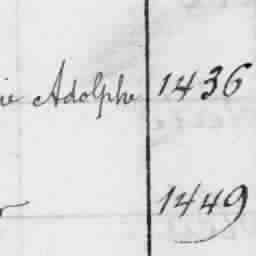 ie Adolphe 1436
r 1449